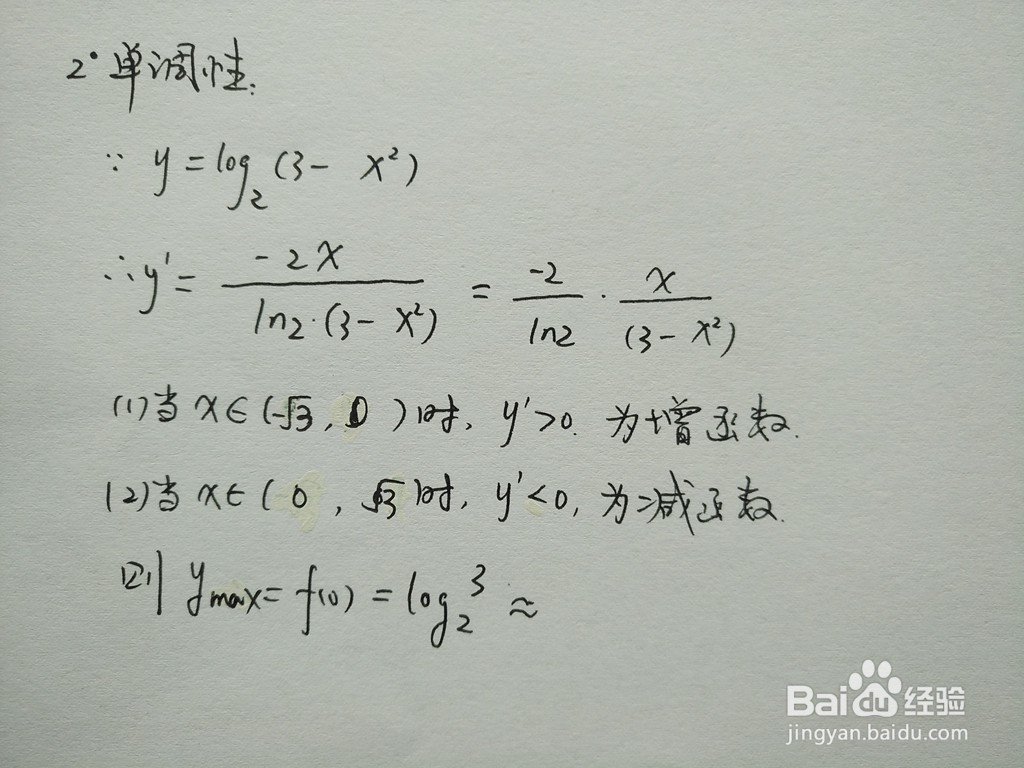 2° 单调性:
∵ y = log₂(3 - x²)
∴ y' = -2x / ln2·(3 - x²) = -2/ln2 · x/(3 - x²)
(1) 当 x∈(-√3, 0) 时, y'>0. 为增函数.
(2) 当 x∈(0, √3) 时, y'<0, 为减函数.
则 ymax = f(0) = log₂3 ≈
Baidu 经验
jingyan.baidu.com